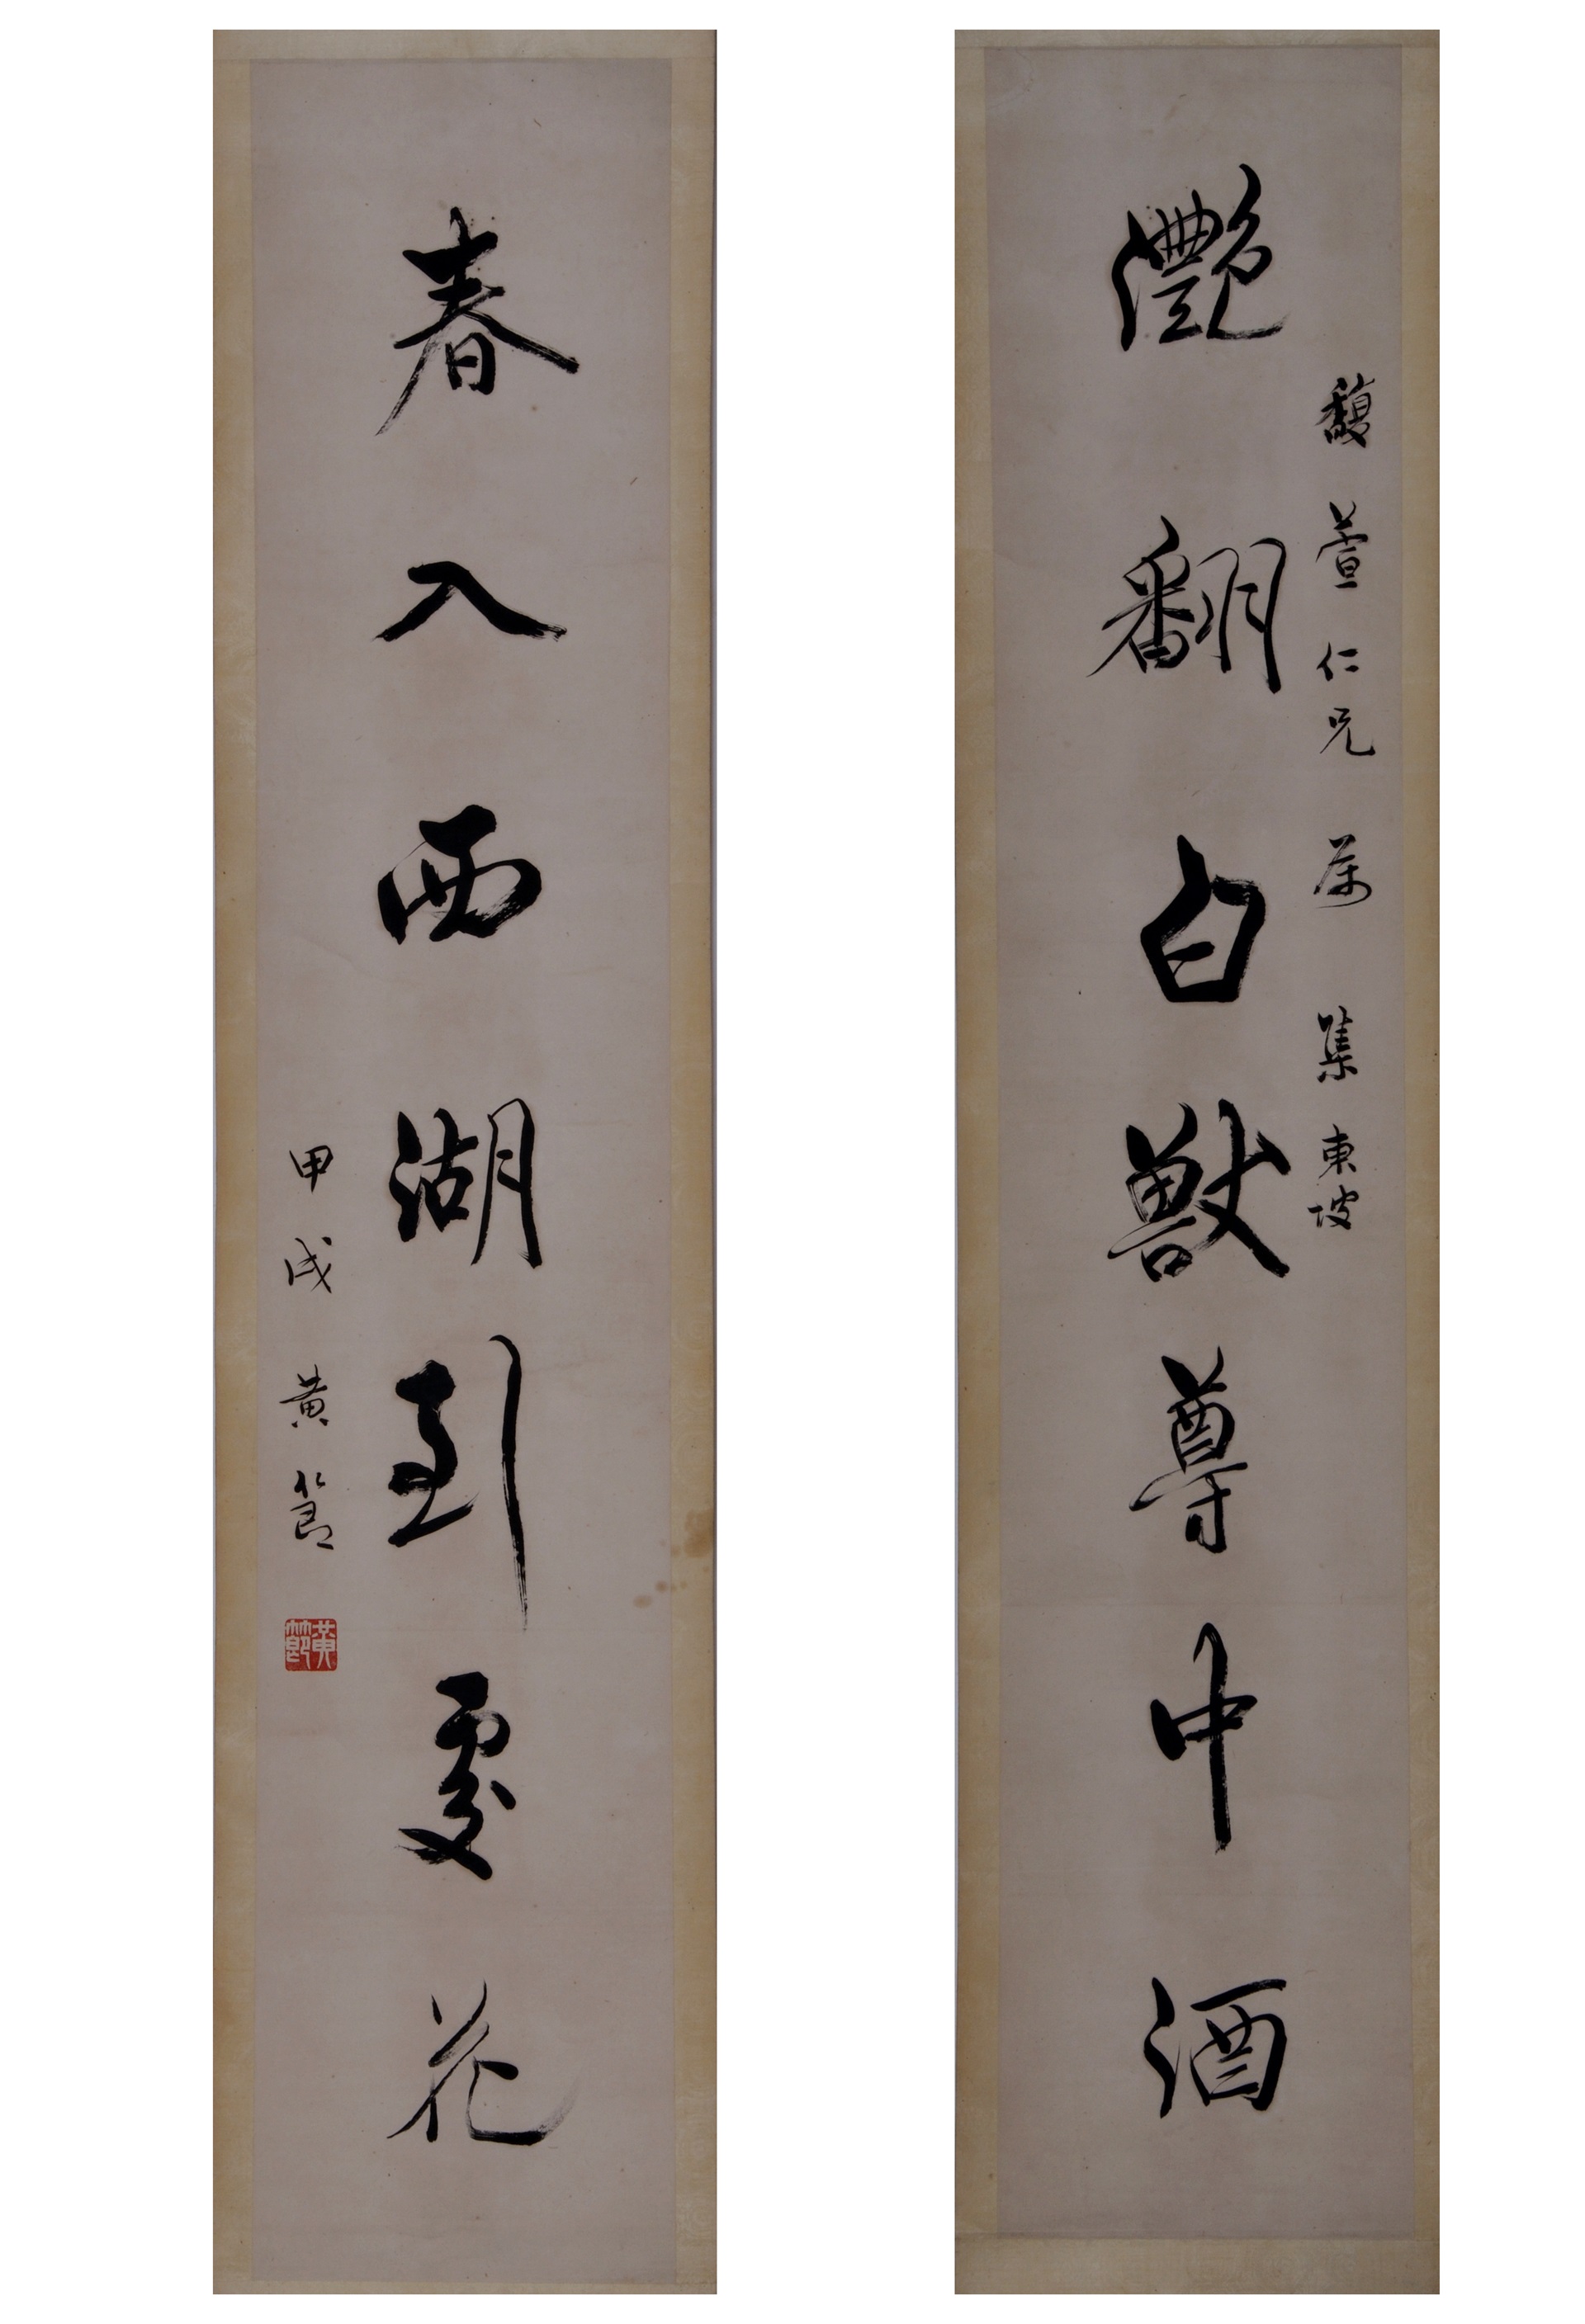 灔翻白獸尊中酒
馥萱仁兄属 集東坡
春入西湖到處花
甲戌 黄節
黄節